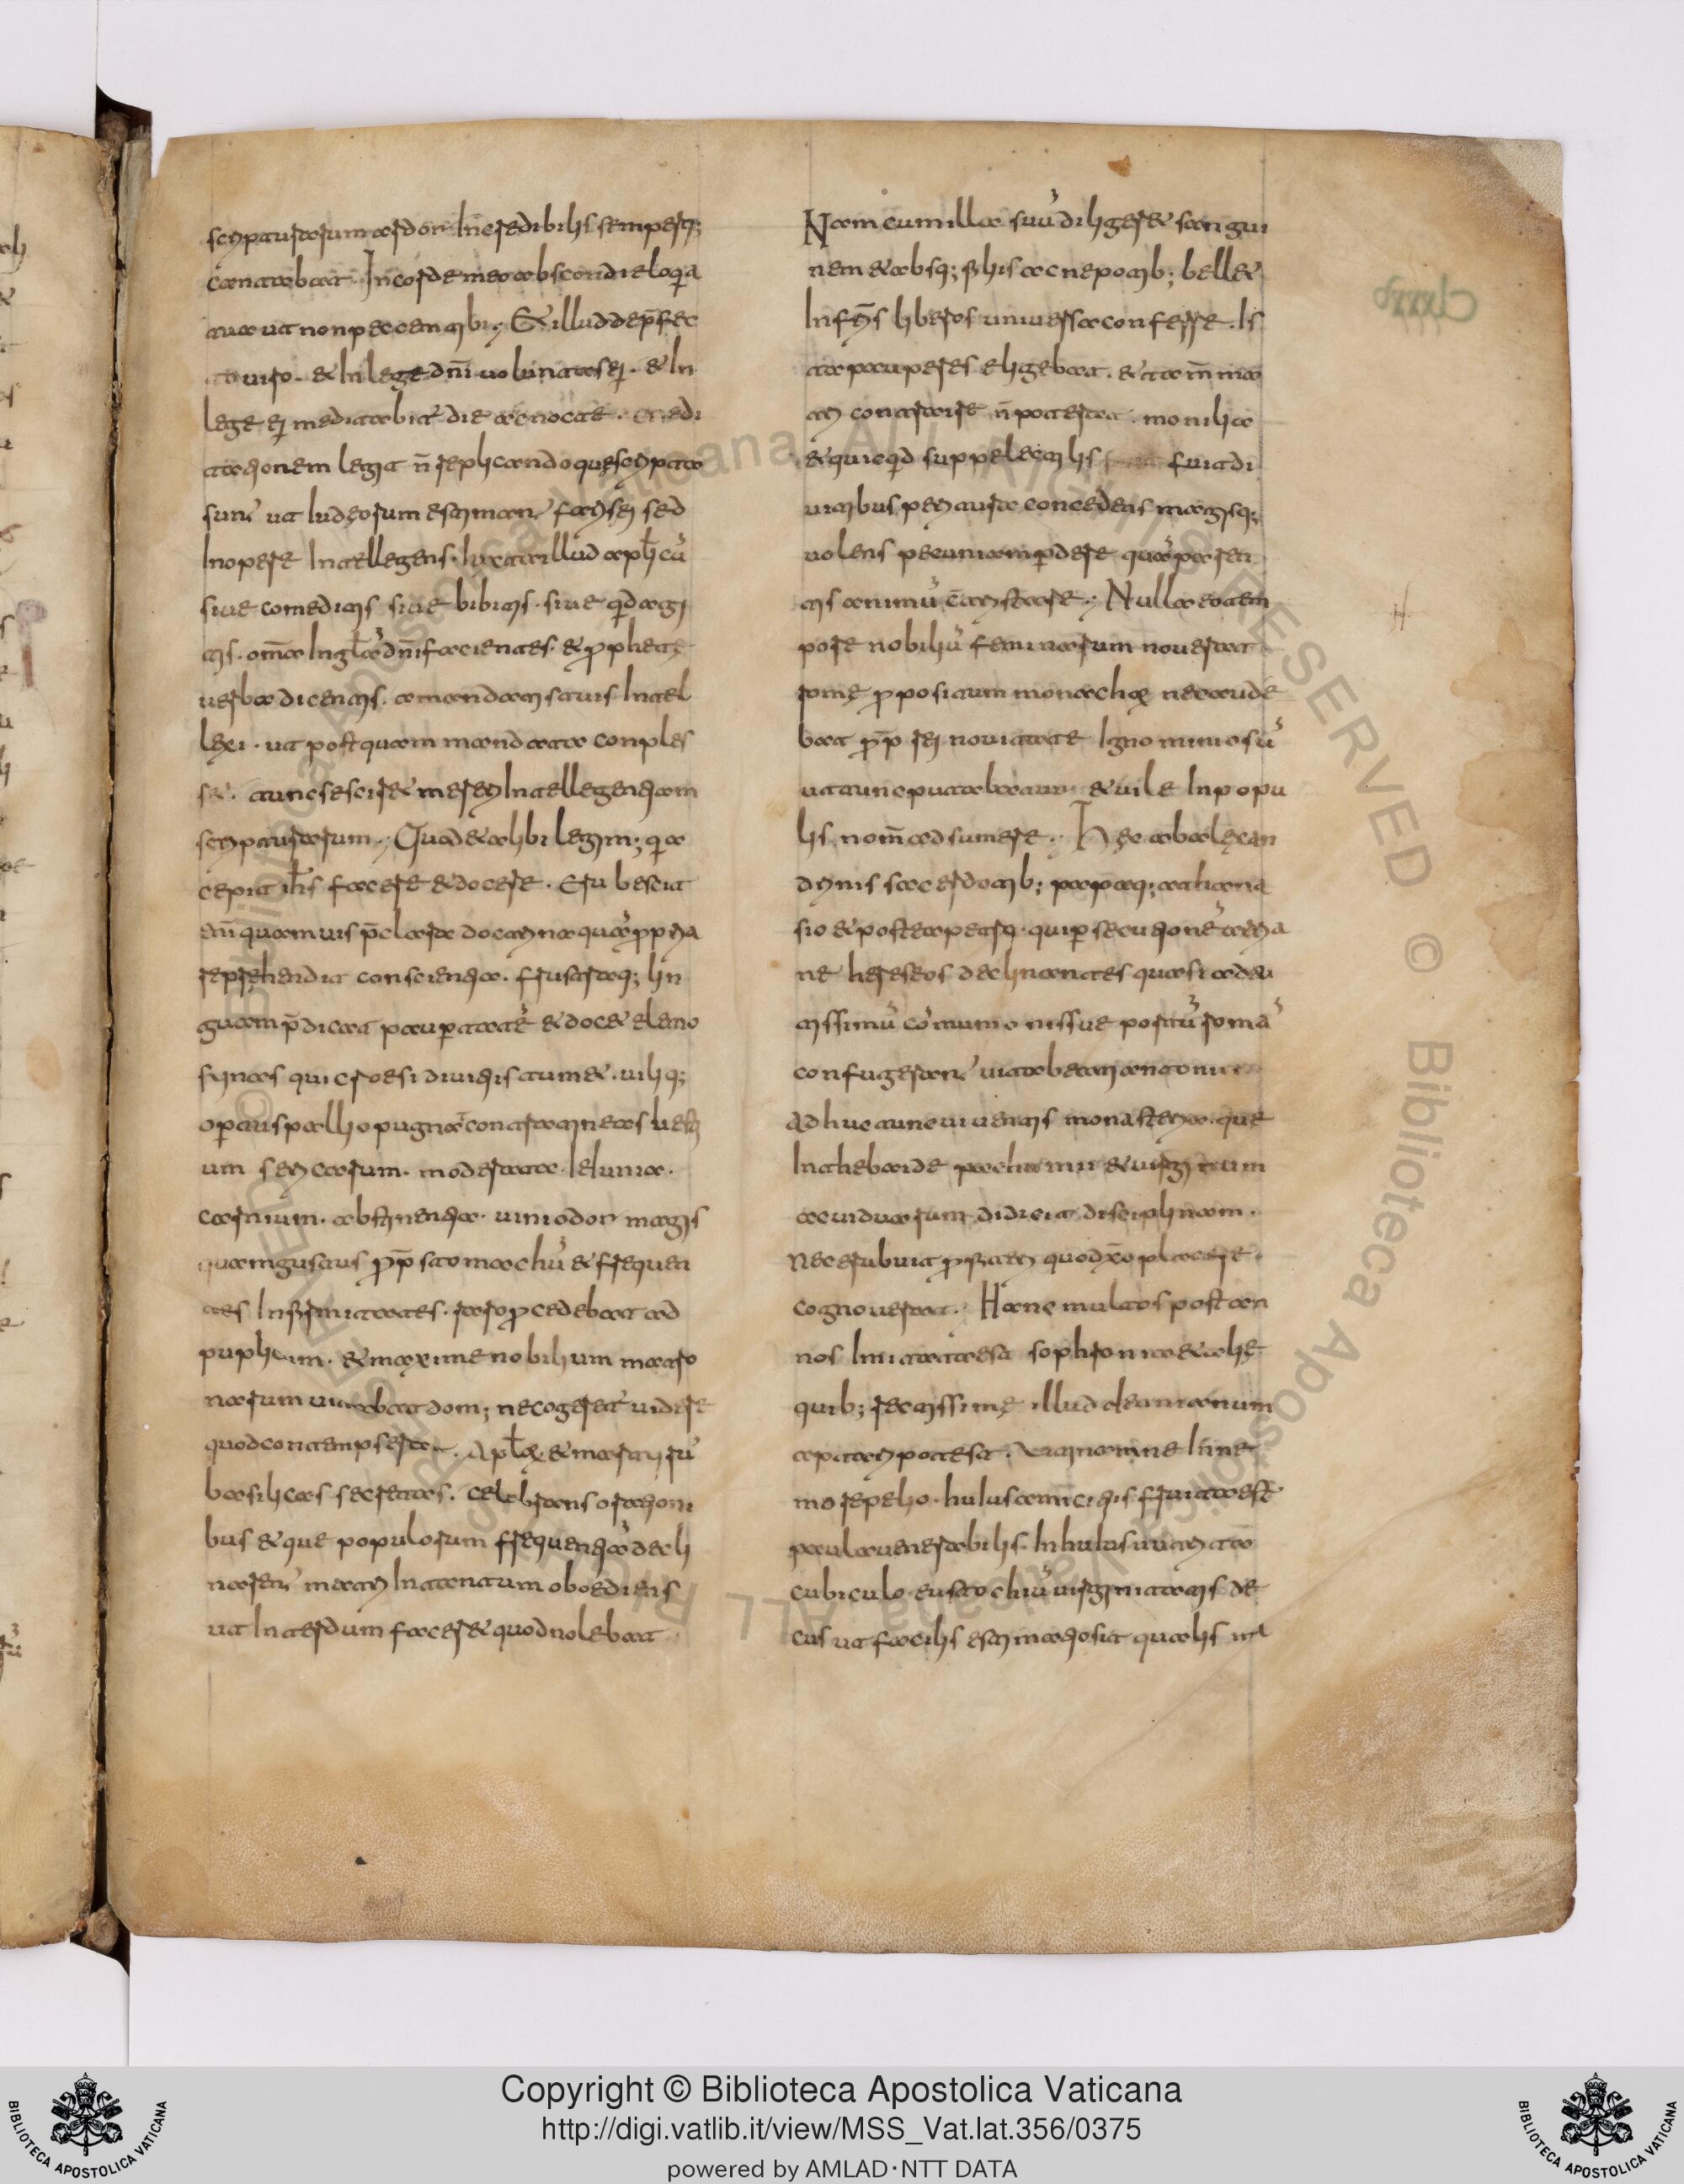 scripturarum ardor Incredibilis semperq;
cantabat. In corde meo abscondi eloqia
tua ut non peccem tibi; Et illud de ꝑfec
to uiro. & In lege dn̄i uoluntas ei. & In
lege ei meditabit die ac nocte. medi
tationem legis n̄ replicando que scripta
sunt ut Iudeorum estimant farisei sed
In opere Intellegens. Iuxta illud apłicū
siue comeditis siue bibitis. siue qd agi
tis. om̄a In głā dn̄i facientes. & prophete
uerba dicentis. a mandatis tuis Intel
lexi. ut postquam mandata conples
s&. tunc se scir& mereri Intellegentiam
scripturarum; Quod & alibi legim; qia
cepit ih̄s facere & docere. Erubescit
eni quamuis p̄clara doctrina quā ꝓpria
reprehendit conscientia. frustraq; lin
guam p̄dicat paupertatē & doc& elemo
synas qui croesi diuitiis tum&. uiliq;
opertus pallio pugnat contra tineas uesti
um sericarum. moderata Ieiunia.
carnium. abstinentia. uini odor magis
quam gustus ꝓp̄ stomachū & frequen
tes Infirmitates. raro procedebat ad
puplicum. & maxime nobilium matro
narum uitabat dom; ne coger& uidere
quod contempserat. Apłoꝝ & martirū
basilicas secretas. celebrans orationi
bus & que populorum frequentiā decli
narent matri In tantum oboediens
ut Interdum facer& quod nolebat
Nam cum illa suū diliger& sangui
nem & absq; filiis ac nepotib; bell&
In frīs liberos uniuersa conferre. Is
ta pauperes eligebat. & tam̄ ma
tri contraire n̄ poterat. monilia
& quicqd suppelectilis fuit di
uitibus peritura concedens magisq;
uolens pecuniam ꝑdere quā paren
tis animū cōtristare; Nulla eo tem
pore nobiliū feminarum nouerat
rome propositum monachoꝝ nec aude
bat ꝓp̄ rei nouitate Ignominiosū
ut tunc putabatur & uile In popu
lis nom̄ adsumere; Hec ab alexan
drinis sacerdotib; papaq; athana
sio & postea petro qui persecutionē arria
ne hereseos declinantes quasi ad tu
tissimū cōmunionis sue portū romā
confugerant uitā beati antonii
adhuc tunc uiuentis monasteria que
In thebaide pachumii & uirginum
ac uiduarum didicit disciplinam.
Nec erubuit profiteri quod xp̄o placere
cognouerat. Hanc multos post an
nos Imitata est sophronia & alie
quib; rectissime illud
aptari potest. utinam ne In ne
mo repelio. huius amicitiis fruita est
paula uenerabilis. In huius nutrita
cubiculo eustochiū uirginitatis de
cus ut facilis estimatio sit qualis
Clxxxv
Copyright © Biblioteca Apostolica Vaticana
http://digi.vatlib.it/view/MSS_Vat.lat.356/0375
powered by AMLAD·NTT DATA
BIBLIOTECA APOSTOLICA VATICANA
BIBLIOTECA APOSTOLICA VATICANA